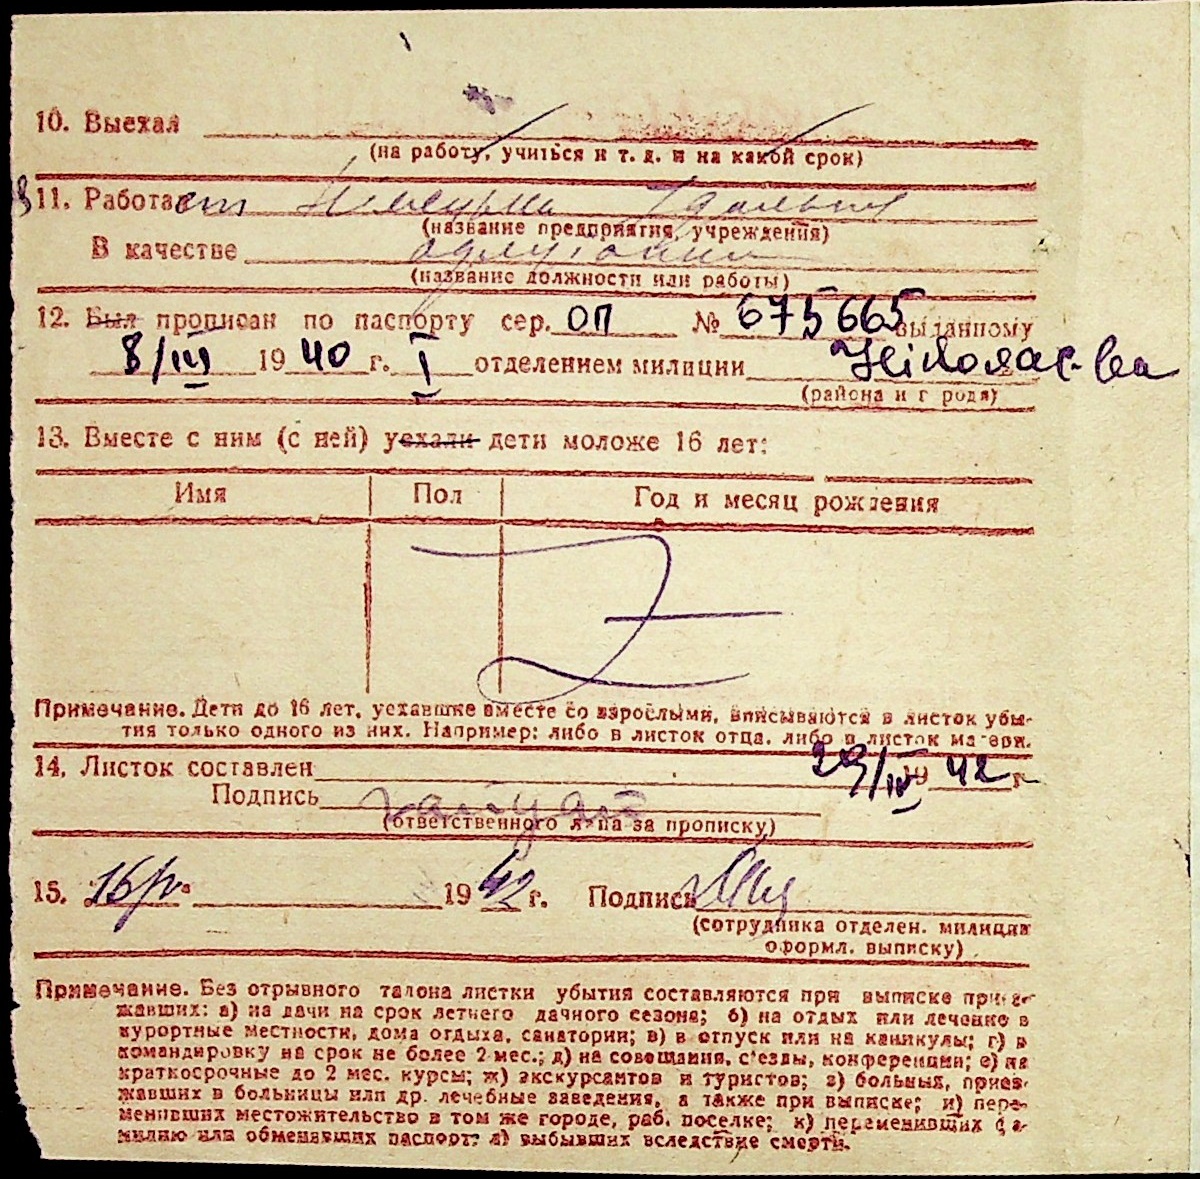 10. Выехал
(на работу, учиться и т. д. и на какой срок)
11. Работает
(название предприятия, учреждения)
В качестве
(название должности или работы)
12. Был прописан по паспорту сер. ОП № 675665 выданному
8/III 1940 г. I отделением милиции
(района и города)
13. Вместе с ним (с ней) уехали дети моложе 16 лет:
Имя Пол Год и месяц рождения
Z
Примечание. Дети до 16 лет, уехавшие вместе со взрослыми, вписываются в листок убы-
тия только одного из них. Например: либо в листок отца, либо в листок матери.
14. Листок составлен 29/IV 1942 г.
Подпись
(ответственного л-ца за прописку)
15. 1942 г. Подпись
(сотрудника отделен. милиции
оформл. выписку)
Примечание. Без отрывного талона листки убытия составляются при выписке приез-
жавших: а) на дачи на срок летнего дачного сезона; б) на отдых или лечение в
курортные местности, дома отдыха, санатории; в) в отпуск или на каникулы; г) в
командировку на срок не более 2 мес.; д) на совещания, с'езды, конференции; е) на
краткосрочные до 2 мес. курсы; ж) экскурсантов и туристов; з) больных, приез-
жавших в больницы или др. лечебные заведения, а также при выписке; и) пере-
менивших местожительство в том же городе, раб. поселке; к) переменивших фа-
милию или обменявших паспорт; л) выбывших вследствие смерти.